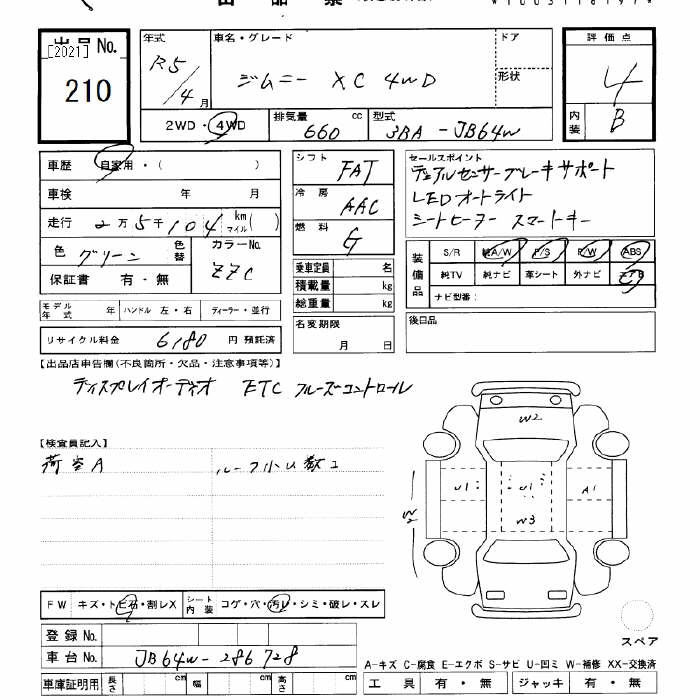 出品票
[2021]
出品 No.
210
年式
R5/4月
車名・グレード
ジムニー XC 4WD
ドア
形状
評価点
4
内装
B
2WD・4WD
排気量 cc
660
型式
3BA-JB64W
車歴 自家用・( )
車検 年 月
走行 2万5千104 km マイル( )
色 グリーン 色替
カラーNo. ZZC
保証書 有・無
モデル年式 年 ハンドル 左・右 ディーラー・並行
リサイクル料金 6180 円 預託済
シフト FAT
冷房 AAC
燃料 G
乗車定員 名
積載量 kg
総重量 kg
名変期限
月 日
セールスポイント
デュアルセンサーブレーキサポート
LEDオートライト
シートヒーター スマートキー
装備品
S/R 純A/W P/S P/W ABS
純TV 純ナビ 革シート 外ナビ エアB
ナビ型番:
後日品
【出品店申告欄(不良箇所・欠品・注意事項等)】
ディスプレイオーディオ ETC クルーズコントロール
【検査員記入】
荷室A
ルーフ小U数コ
W2
U1
U1
A1
W3
W2
FW キズ・トビ石・割レX
シート内装 コゲ・穴・汚レ・シミ・破レ・スレ
登録 No.
車台 No. JB64W-286728
車庫証明用 長さ cm 幅 cm 高さ cm
スペア
A-キズ C-腐食 E-エクボ S-サビ U-凹ミ W-補修 XX-交換済
工具 有・無 ジャッキ 有・無